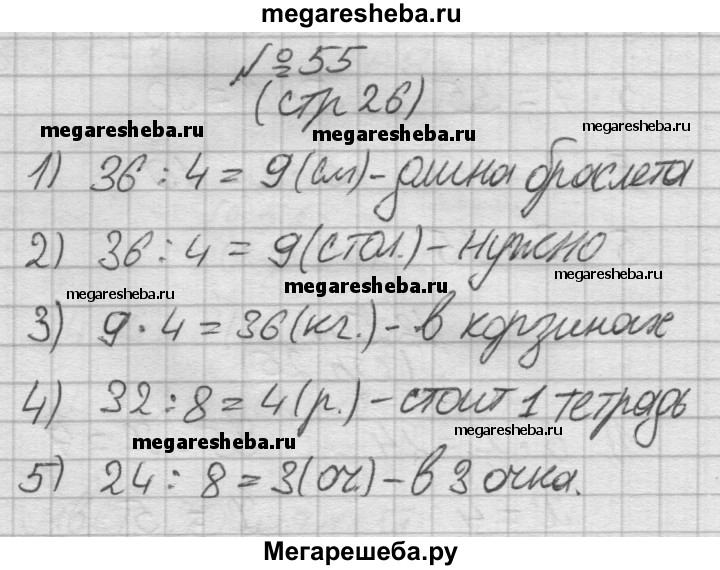 megaresheba.ru
№ 55
(стр 26)
megaresheba.ru megaresheba.ru megaresheba.ru
1) 36 : 4 = 9 (см) - длина браслета
2) 36 : 4 = 9 (стол.) - нужно
megaresheba.ru megaresheba.ru megaresheba.ru
3) 9 · 4 = 36 (кг.) - в корзинах
4) 32 : 8 = 4 (р.) - стоит 1 тетрадь
megaresheba.ru megaresheba.ru
5) 24 : 8 = 3 (оч.) - в 3 очка.
megaresheba.ru
Мегарешеба.ру